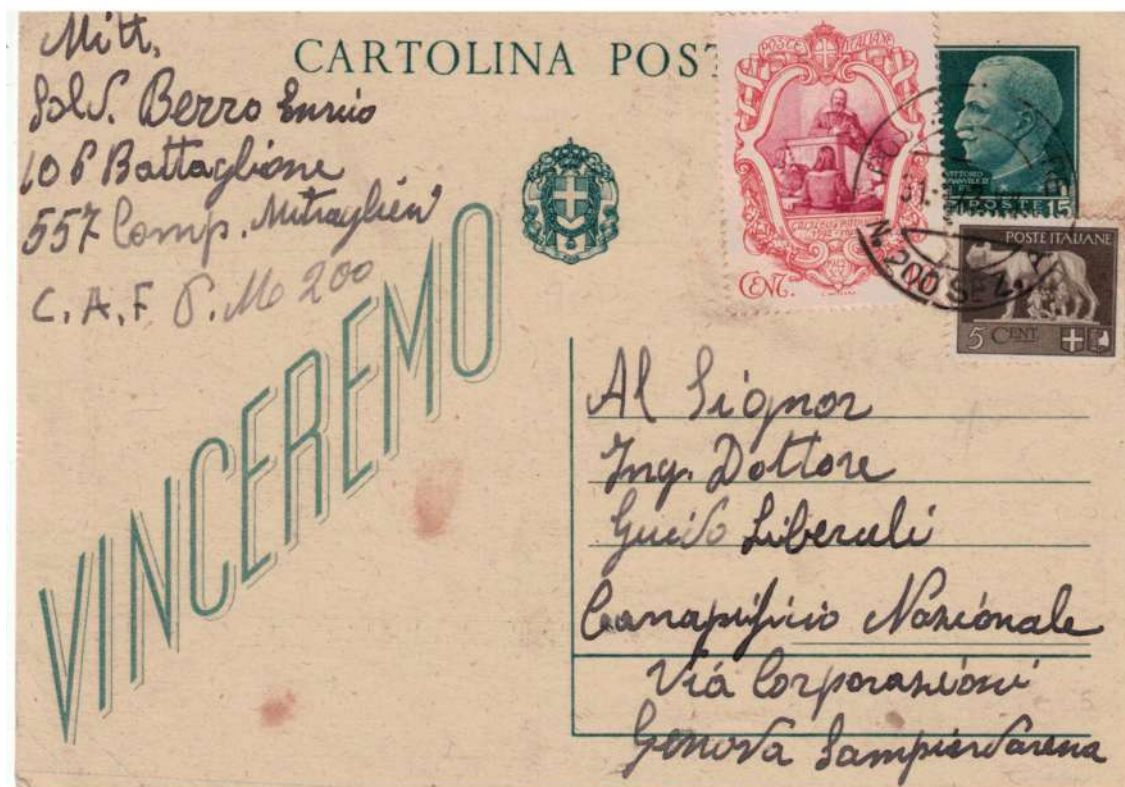 Mitt.
Sold. Berro Enrico
106 Battaglione
557 Comp. Mitraglieri
C. A. F P. M 200
CARTOLINA POST
POSTE ITALIANE
CENT.
VITTORIO
POSTE 15
N. 200 SEZ. A
POSTE ITALIANE
5 CENT.
VINCEREMO
Al Signor
Ing. Dottore
Guido Liberali
Canapificio Nazionale
Via Corporazioni
Genova Sampierdarena